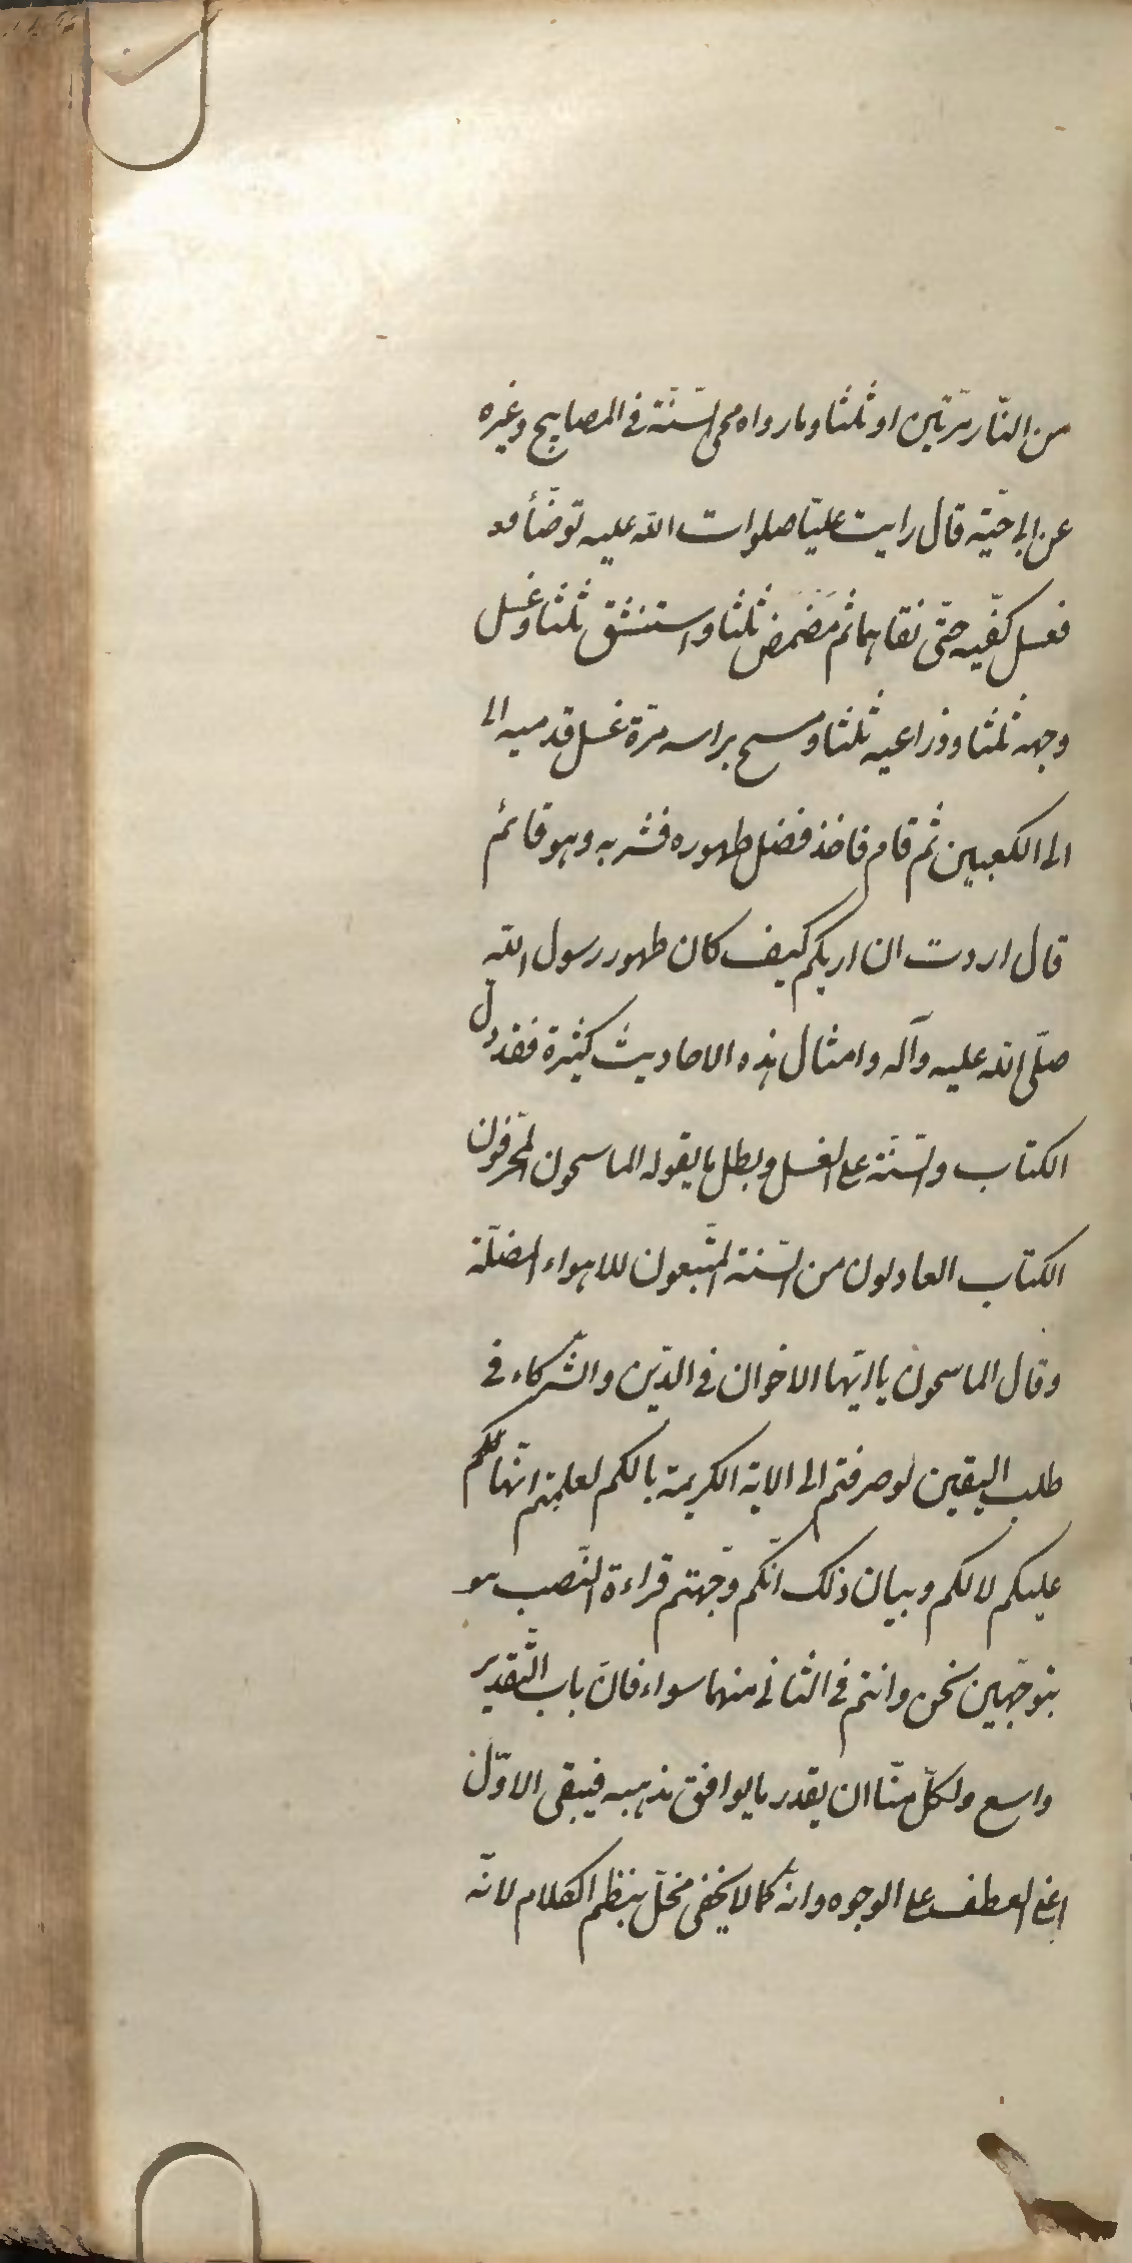 من النّار مرّتين او ثلثا وما رواه محى السّنّة فى المصابيح وغيره
عن ابى حيّة قال رايت عليّا صلوات الله عليه توضّأ
فغسل كفّيه حتّى نقاهما ثم مَضْمَضَ ثلثا واستنشق ثلثا وغسل
وجهه ثلثا وذراعيه ثلثا ومسح براسه مرّة غسل قدميه الى
الى الكعبين ثم قام فاخذ فضل طهوره فشربه وهو قائم
قال اردت ان اريكم كيف كان طهور رسول الله
صلّى الله عليه وآله وامثال هذه الاحاديث كثيرة فقد دل
الكتاب والسّنّة على الغسل وبطل ما يقوله الماسحون المحرّفون
الكتاب العادلون من السّنة المتّبعون للاهواء المضلّة
وقال الماسحون يا ايّها الاخوان فى الدّين والشّركاء فى
طلب اليقين لو صرفتم الى الاية الكريمة بالكم لعلمتم انّها لكم
عليكم لا لكم وبيان ذلك انّكم وجّهتم قراءة النّصب
بتوجّهين نحن وانتم فى الثانى منهما سواء فانّ باب التّقدير
واسع ولكلّ منّا ان يقدر ما يوافق مذهبه فيبقى الاوّل
اعنى العطف على الوجوه وانّه كما لا يخفى مخلّ بنظم الكلام لانّه